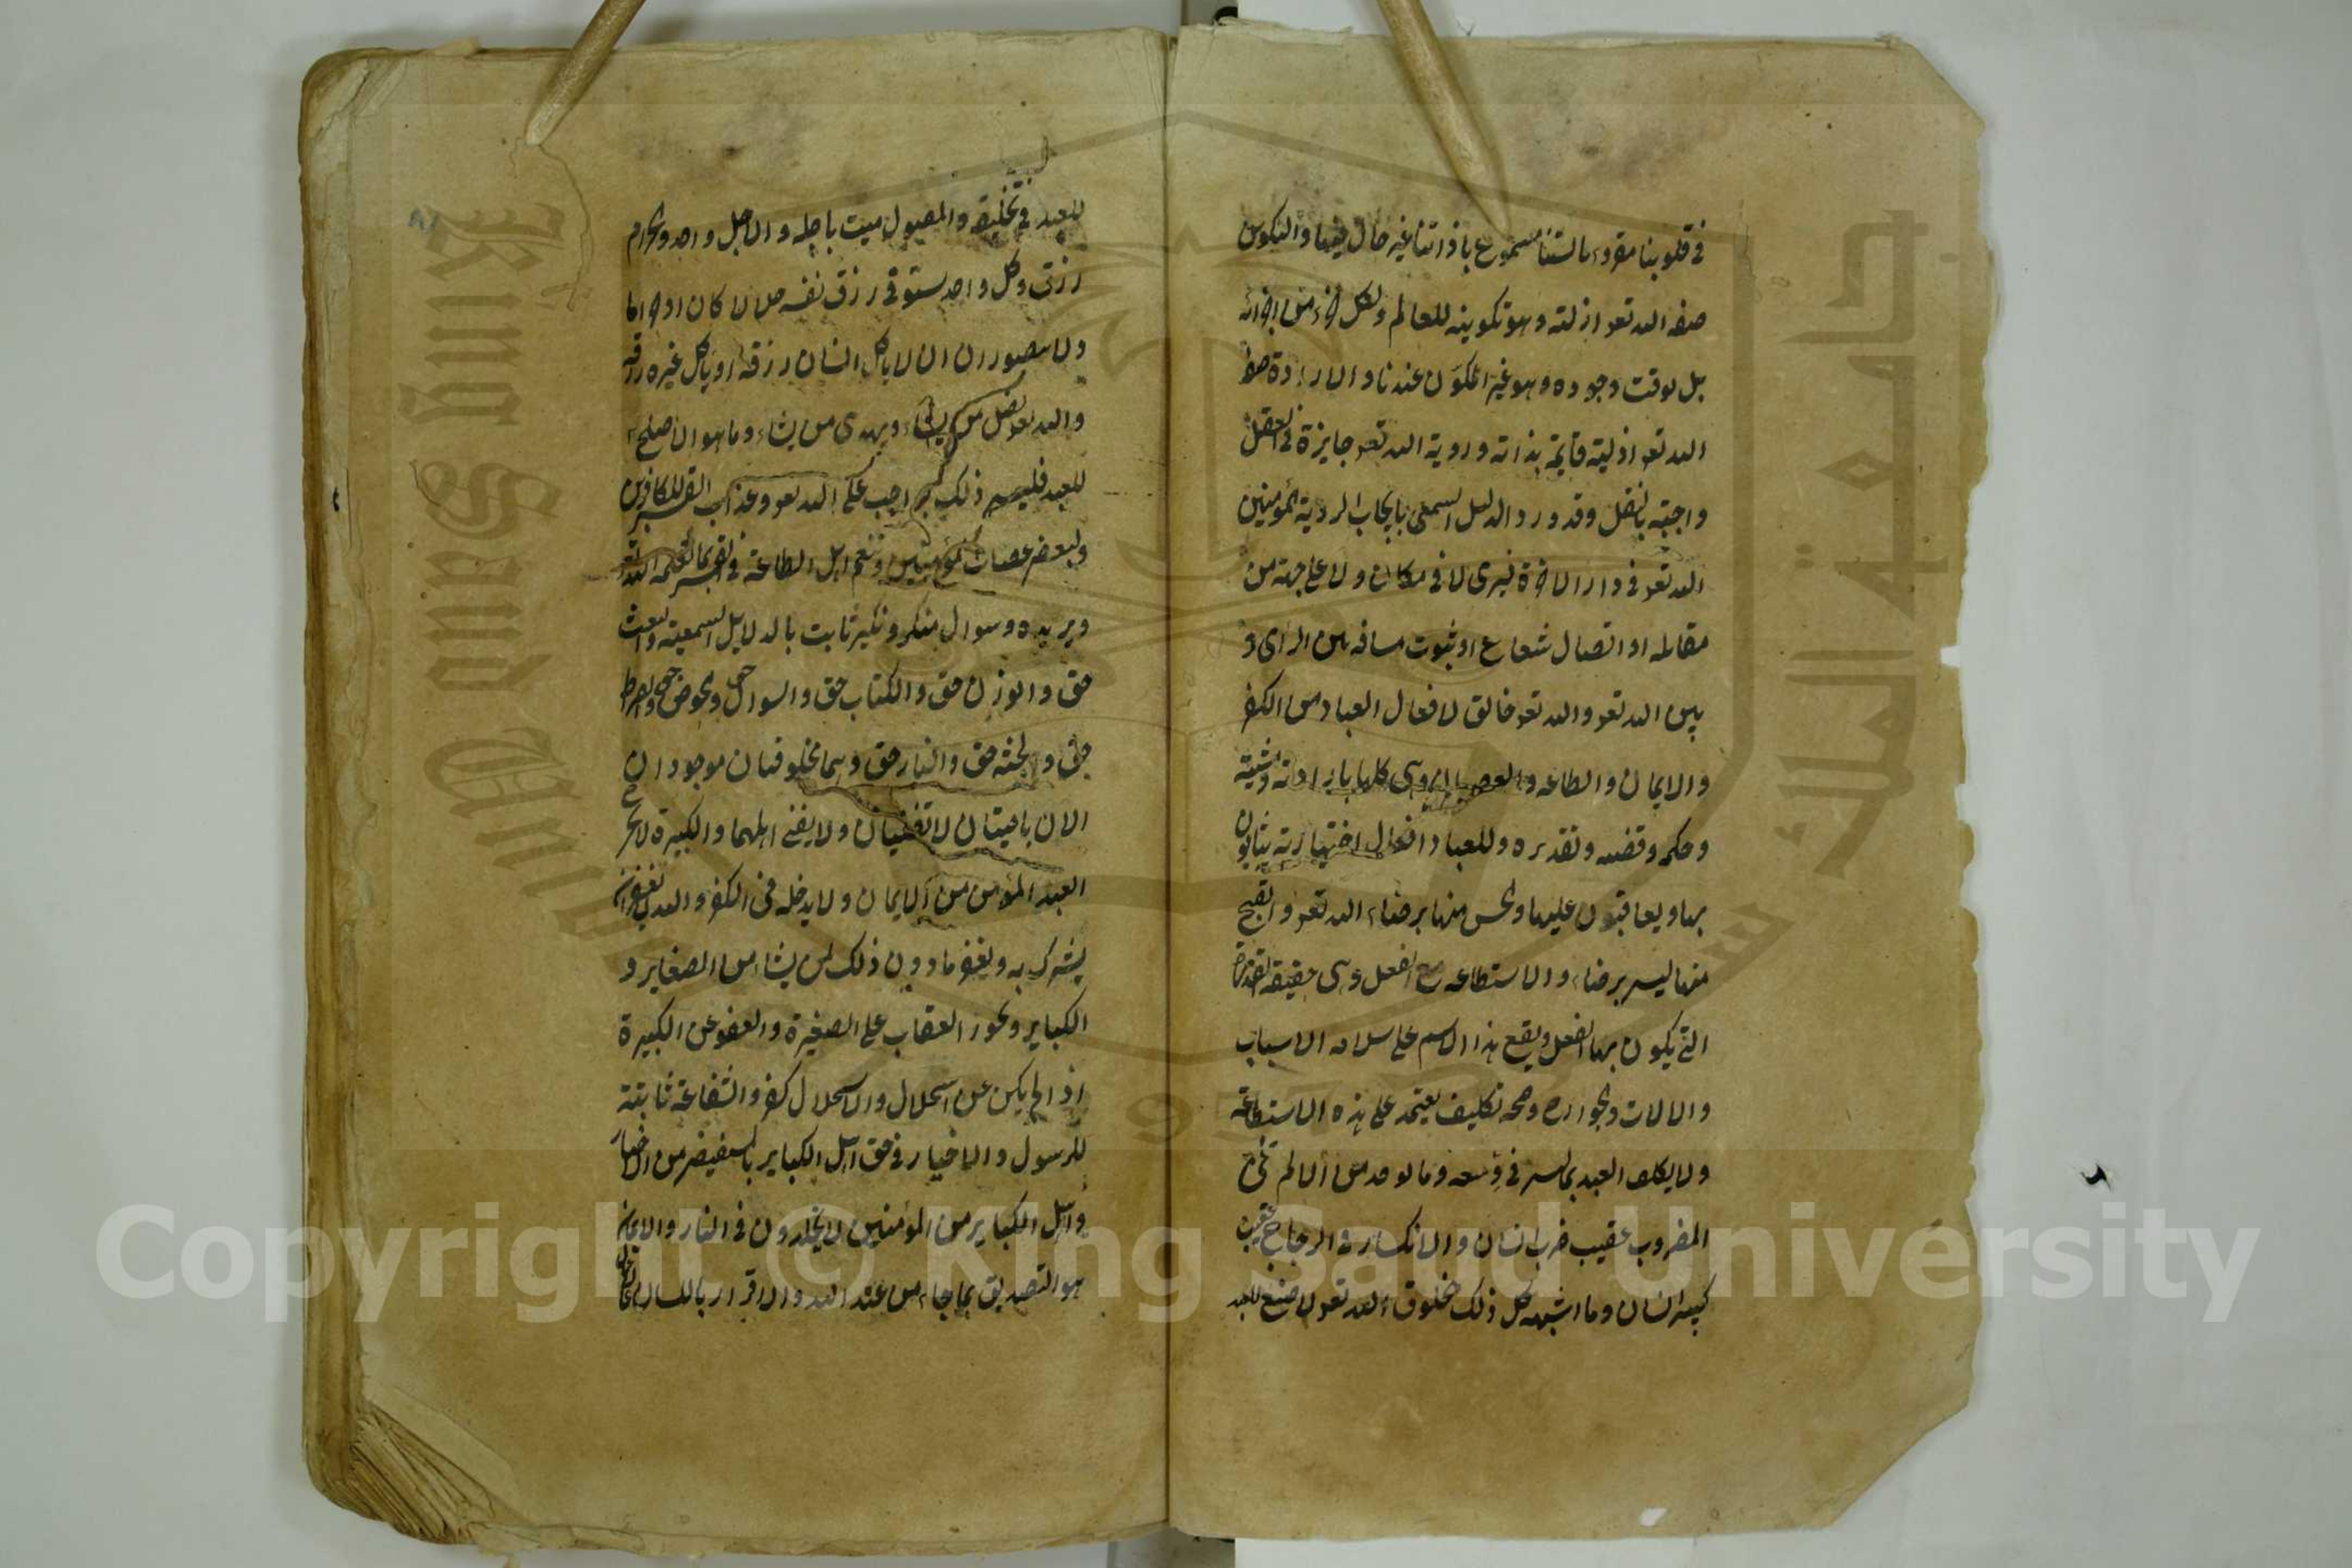 في قلوبنا مقروء بالسنتنا مسموع باذاننا غير حال فيها والتكوين
صفه الله تعو ازلته وهو تكوينه للعالم ولكل جزء من اجزائه
بل لوقت وجوده وهو غير المكون عندنا والارادة صفة
الله تعو ازلية قايمة بذاته وروية الله تعو جايزة في العقل
واجبته بالنقل وقد ورد الدليل السمعى بايجاب الروية المؤمنين
الله تعو في دار الاخرة فيرى لا في مكان ولا على جهة من
مقابله او اتصال شعاع او ثبوت مسافه بين الراى و
بين الله تعو والله تعو خالق لافعال العباد من الكفر
والايمان والطاعه والعصيان وهى كلها بارادته ومشيته
وحكمه وقضيه وتقديره وللعباد افعال اختيارية يثابون
بها ويعاقبون عليها والحسن منها برضاء الله تعو والقبيح
منها ليس برضاء والاستطاعه مع الفعل وهى حقيقة القدرة
التي يكون بها الفعل ويقع هذا الاسم على سلامه الاسباب
والالات والجوارح وصحه تكليف يعتمد على هذه الاستطاعة
ولا يكلف العبد بماليس في وسعه وما يوجد من الالم في
المضروب عقيب ضرب انسان والانكسار في الزجاج عقيب
كسر انسان وما اشبهه كل ذلك مخلوق الله تعو لا صنع للعبد
للعبد في تخليقه والمقتول ميت باجله والاجل واحد والحرام
رزق وكل واحد يستوفى رزق نفسه حلالا كان او حراما
ولا يتصور ان لا ياكل انسان رزقه او ياكل غيره رزقه
والله تعو يضل من يشاء ويهدى من يشاء وما هو الاصلح
للعبد فليس ذلك بواجب على الله تعو وعذاب القبر للكافرين
ولبعض عصات المؤمنين وتنعم اهل الطاعة في القبر بما يعلمه الله تعو
ويريده وسوال منكر ونكير ثابت بالدلايل السمعية والبعث
حق والوزن حق والكتاب حق والسوال حق والحوض حق والصراط
حق والجنة حق والنار حق وهما مخلوقتان موجودان
الان باقيتان لا تفنيان ولا يفنى اهلهما والكبيرة لا تخرج
العبد المؤمن من الايمان ولا يدخله في الكفر والله لا يغفر ان
يشرك به ويغفر ما دون ذلك لمن يشا من الصغاير و
الكباير ويجوز العقاب على الصغيرة والعفو عن الكبيرة
اذا لم يكن عن استحلال والاستحلال كفر والشفاعة ثابتة
للرسول والاخيار في حق اهل الكباير بالمستفيض من الاخبار
واهل الكباير من المؤمنين لا يخلدون في النار والايمان
هو التصديق بما جاء من عند الله والاقرار باللسان